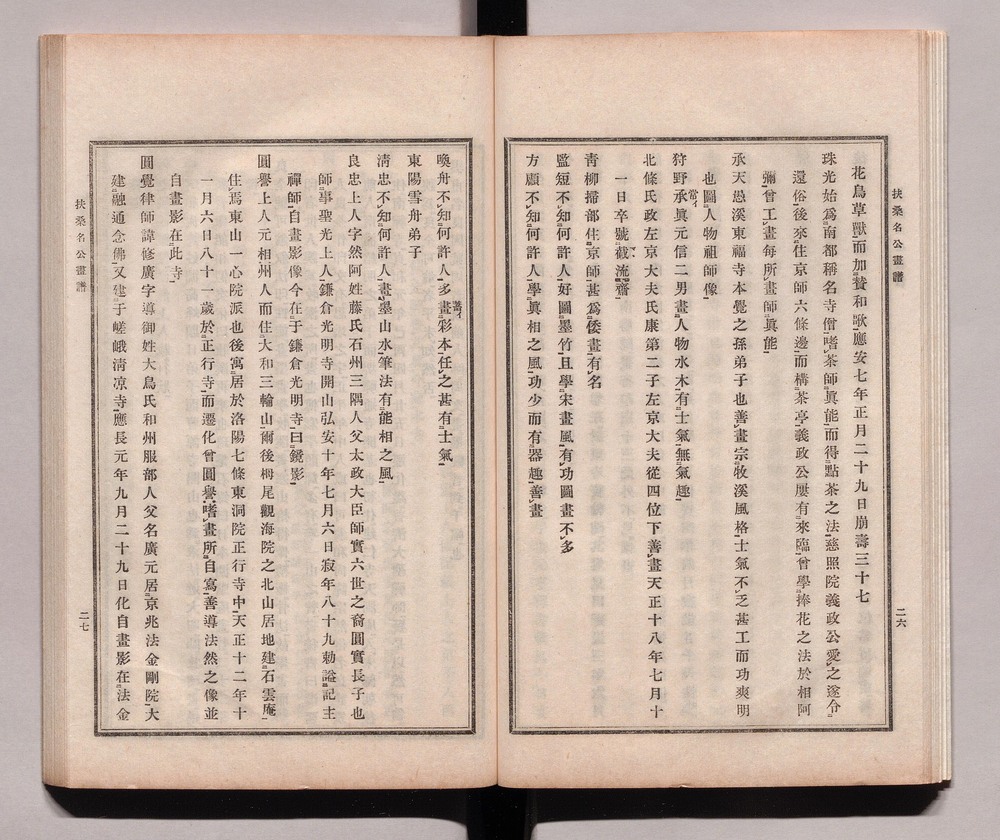 扶桑名公畫譜
二六
花鳥草獸而加贊和歌應安七年正月二十九日崩壽三十七
珠光始爲南都稱名寺僧嗜茶師眞能而得點茶之法慈照院義政公愛之遂令
還俗後來住京師六條邊而構茶亭義政公屢有來臨曾學捧花之法於相阿
彌曾工畫每所畫師眞能
承天愚溪東福寺本覺之孫弟子也善畫宗牧溪風格士氣不乏甚工而功爽明
也圖人物祖師像
狩野承眞元信二男畫人物水木有士氣無氣趣
北條氏政左京大夫氏康第二子左京大夫從四位下善畫天正十八年七月十
一日卒號截流齋
青柳掃部住京師甚爲倭畫有名
監短不知何許人好圖墨竹且學宋畫風有功圖畫不多
方顧不知何許人學眞相之風功少而有器趣善畫
喚舟不知何許人多畫彩本任之甚有士氣
東陽雪舟弟子
淸忠不知何許人畫墨山水筆法有能相之風
良忠上人字然阿姓藤氏石州三隅人父太政大臣師實六世之裔圓實長子也
師事聖光上人鎌倉光明寺開山弘安十年七月六日寂年八十九勅謚記主
禪師自畫影像今在于鎌倉光明寺曰鏡影
圓譽上人元相州人而住大和三輪山爾後栂尾觀海院之北山居地建石雲庵
住焉東山一心院派也後寓居於洛陽七條東洞院正行寺中天正十二年十
一月六日八十一歲於正行寺而遷化曾圓譽嗜畫所自寫善導法然之像並
自畫影在此寺
圓覺律師諱修廣字導御姓大鳥氏和州服部人父名廣元居京兆法金剛院大
建融通念佛又建于嵯峨淸凉寺應長元年九月二十九日化自畫影在法金
扶桑名公畫譜
二七